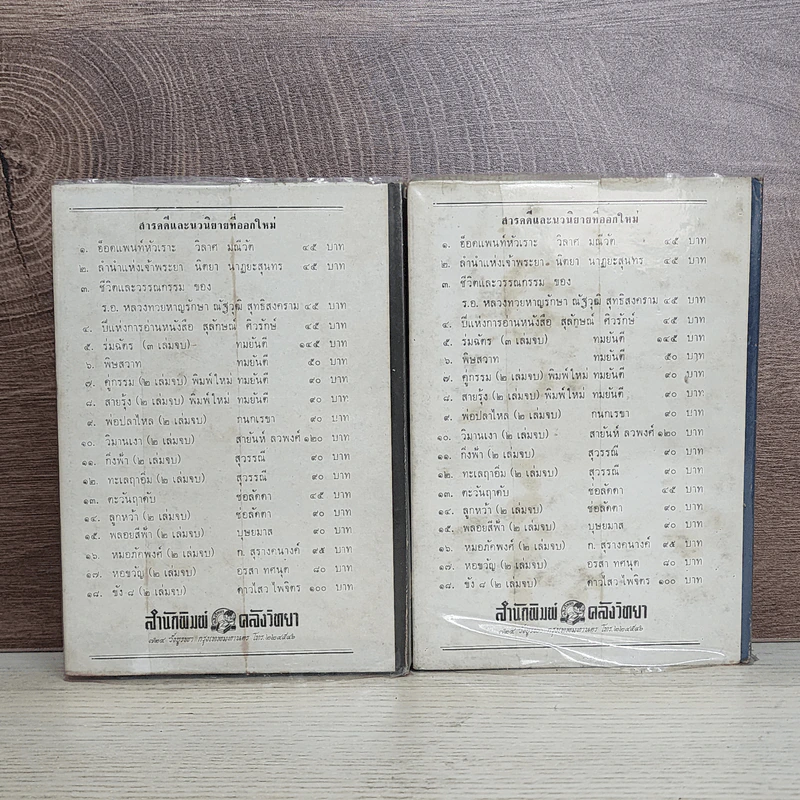 สารคดีและนวนิยายที่ออกใหม่
๑. ช็อตแพนท์หัวเราะ วิลาศ มณีวัต ๔๕ บาท
๒. ลำนำแห่งเจ้าพระยา นิตยา นาฏยะสุนทร ๔๕ บาท
๓. ชีวิตและวรรณกรรม ของ
ร.อ. หลวงทวยหาญรักษา ณัฐวุฒิ สุทธิสงคราม ๔๕ บาท
๔. ปีแห่งการอ่านหนังสือ สุลักษณ์ ศิวรักษ์ ๔๕ บาท
๕. ร่มฉัตร (๓ เล่มจบ) ทมยันตี ๑๔๕ บาท
๖. พิษสวาท ทมยันตี ๕๐ บาท
๗. คู่กรรม (๒ เล่มจบ) พิมพ์ใหม่ ทมยันตี ๙๐ บาท
๘. สายรุ้ง (๒ เล่มจบ) พิมพ์ใหม่ ทมยันตี ๙๐ บาท
๙. พ่อปลาไหล (๒ เล่มจบ) กนกเรขา ๙๐ บาท
๑๐. วิมานเงา (๒ เล่มจบ) สายันห์ ลวพงศ์ ๑๒๐ บาท
๑๑. กิ่งฟ้า (๒ เล่มจบ) สุวรรณี ๙๐ บาท
๑๒. ทะเลฤาอิ่ม (๒ เล่มจบ) สุวรรณี ๙๐ บาท
๑๓. ตะวันฤาดับ ช่อลัดดา ๔๕ บาท
๑๔. ลูกหว้า (๒ เล่มจบ) ช่อลัดดา ๙๐ บาท
๑๕. พลอยสีฟ้า (๒ เล่มจบ) บุษยมาส ๙๐ บาท
๑๖. หมอภัคพงศ์ (๒ เล่มจบ) ก. สุรางคนางค์ ๙๕ บาท
๑๗. หอขวัญ (๒ เล่มจบ) อรสา ทศนุต ๘๐ บาท
๑๘. ขัง ๘ (๒ เล่มจบ) ดาวไสว ไพจิตร ๑๐๐ บาท
สำนักพิมพ์ คลังวิทยา
๗๒๔ วังบูรพา กรุงเทพมหานคร โทร. ๒๒๔๕๔๖
สารคดีและนวนิยายที่ออกใหม่
๑. ช็อตแพนท์หัวเราะ วิลาศ มณีวัต ๔๕ บาท
๒. ลำนำแห่งเจ้าพระยา นิตยา นาฏยะสุนทร ๔๕ บาท
๓. ชีวิตและวรรณกรรม ของ
ร.อ. หลวงทวยหาญรักษา ณัฐวุฒิ สุทธิสงคราม ๔๕ บาท
๔. ปีแห่งการอ่านหนังสือ สุลักษณ์ ศิวรักษ์ ๔๕ บาท
๕. ร่มฉัตร (๓ เล่มจบ) ทมยันตี ๑๔๕ บาท
๖. พิษสวาท ทมยันตี ๕๐ บาท
๗. คู่กรรม (๒ เล่มจบ) พิมพ์ใหม่ ทมยันตี ๙๐ บาท
๘. สายรุ้ง (๒ เล่มจบ) พิมพ์ใหม่ ทมยันตี ๙๐ บาท
๙. พ่อปลาไหล (๒ เล่มจบ) กนกเรขา ๙๐ บาท
๑๐. วิมานเงา (๒ เล่มจบ) สายันห์ ลวพงศ์ ๑๒๐ บาท
๑๑. กิ่งฟ้า (๒ เล่มจบ) สุวรรณี ๙๐ บาท
๑๒. ทะเลฤาอิ่ม (๒ เล่มจบ) สุวรรณี ๙๐ บาท
๑๓. ตะวันฤาดับ ช่อลัดดา ๔๕ บาท
๑๔. ลูกหว้า (๒ เล่มจบ) ช่อลัดดา ๙๐ บาท
๑๕. พลอยสีฟ้า (๒ เล่มจบ) บุษยมาส ๙๐ บาท
๑๖. หมอภัคพงศ์ (๒ เล่มจบ) ก. สุรางคนางค์ ๙๕ บาท
๑๗. หอขวัญ (๒ เล่มจบ) อรสา ทศนุต ๘๐ บาท
๑๘. ขัง ๘ (๒ เล่มจบ) ดาวไสว ไพจิตร ๑๐๐ บาท
สำนักพิมพ์ คลังวิทยา
๗๒๔ วังบูรพา กรุงเทพมหานคร โทร. ๒๒๔๕๔๖